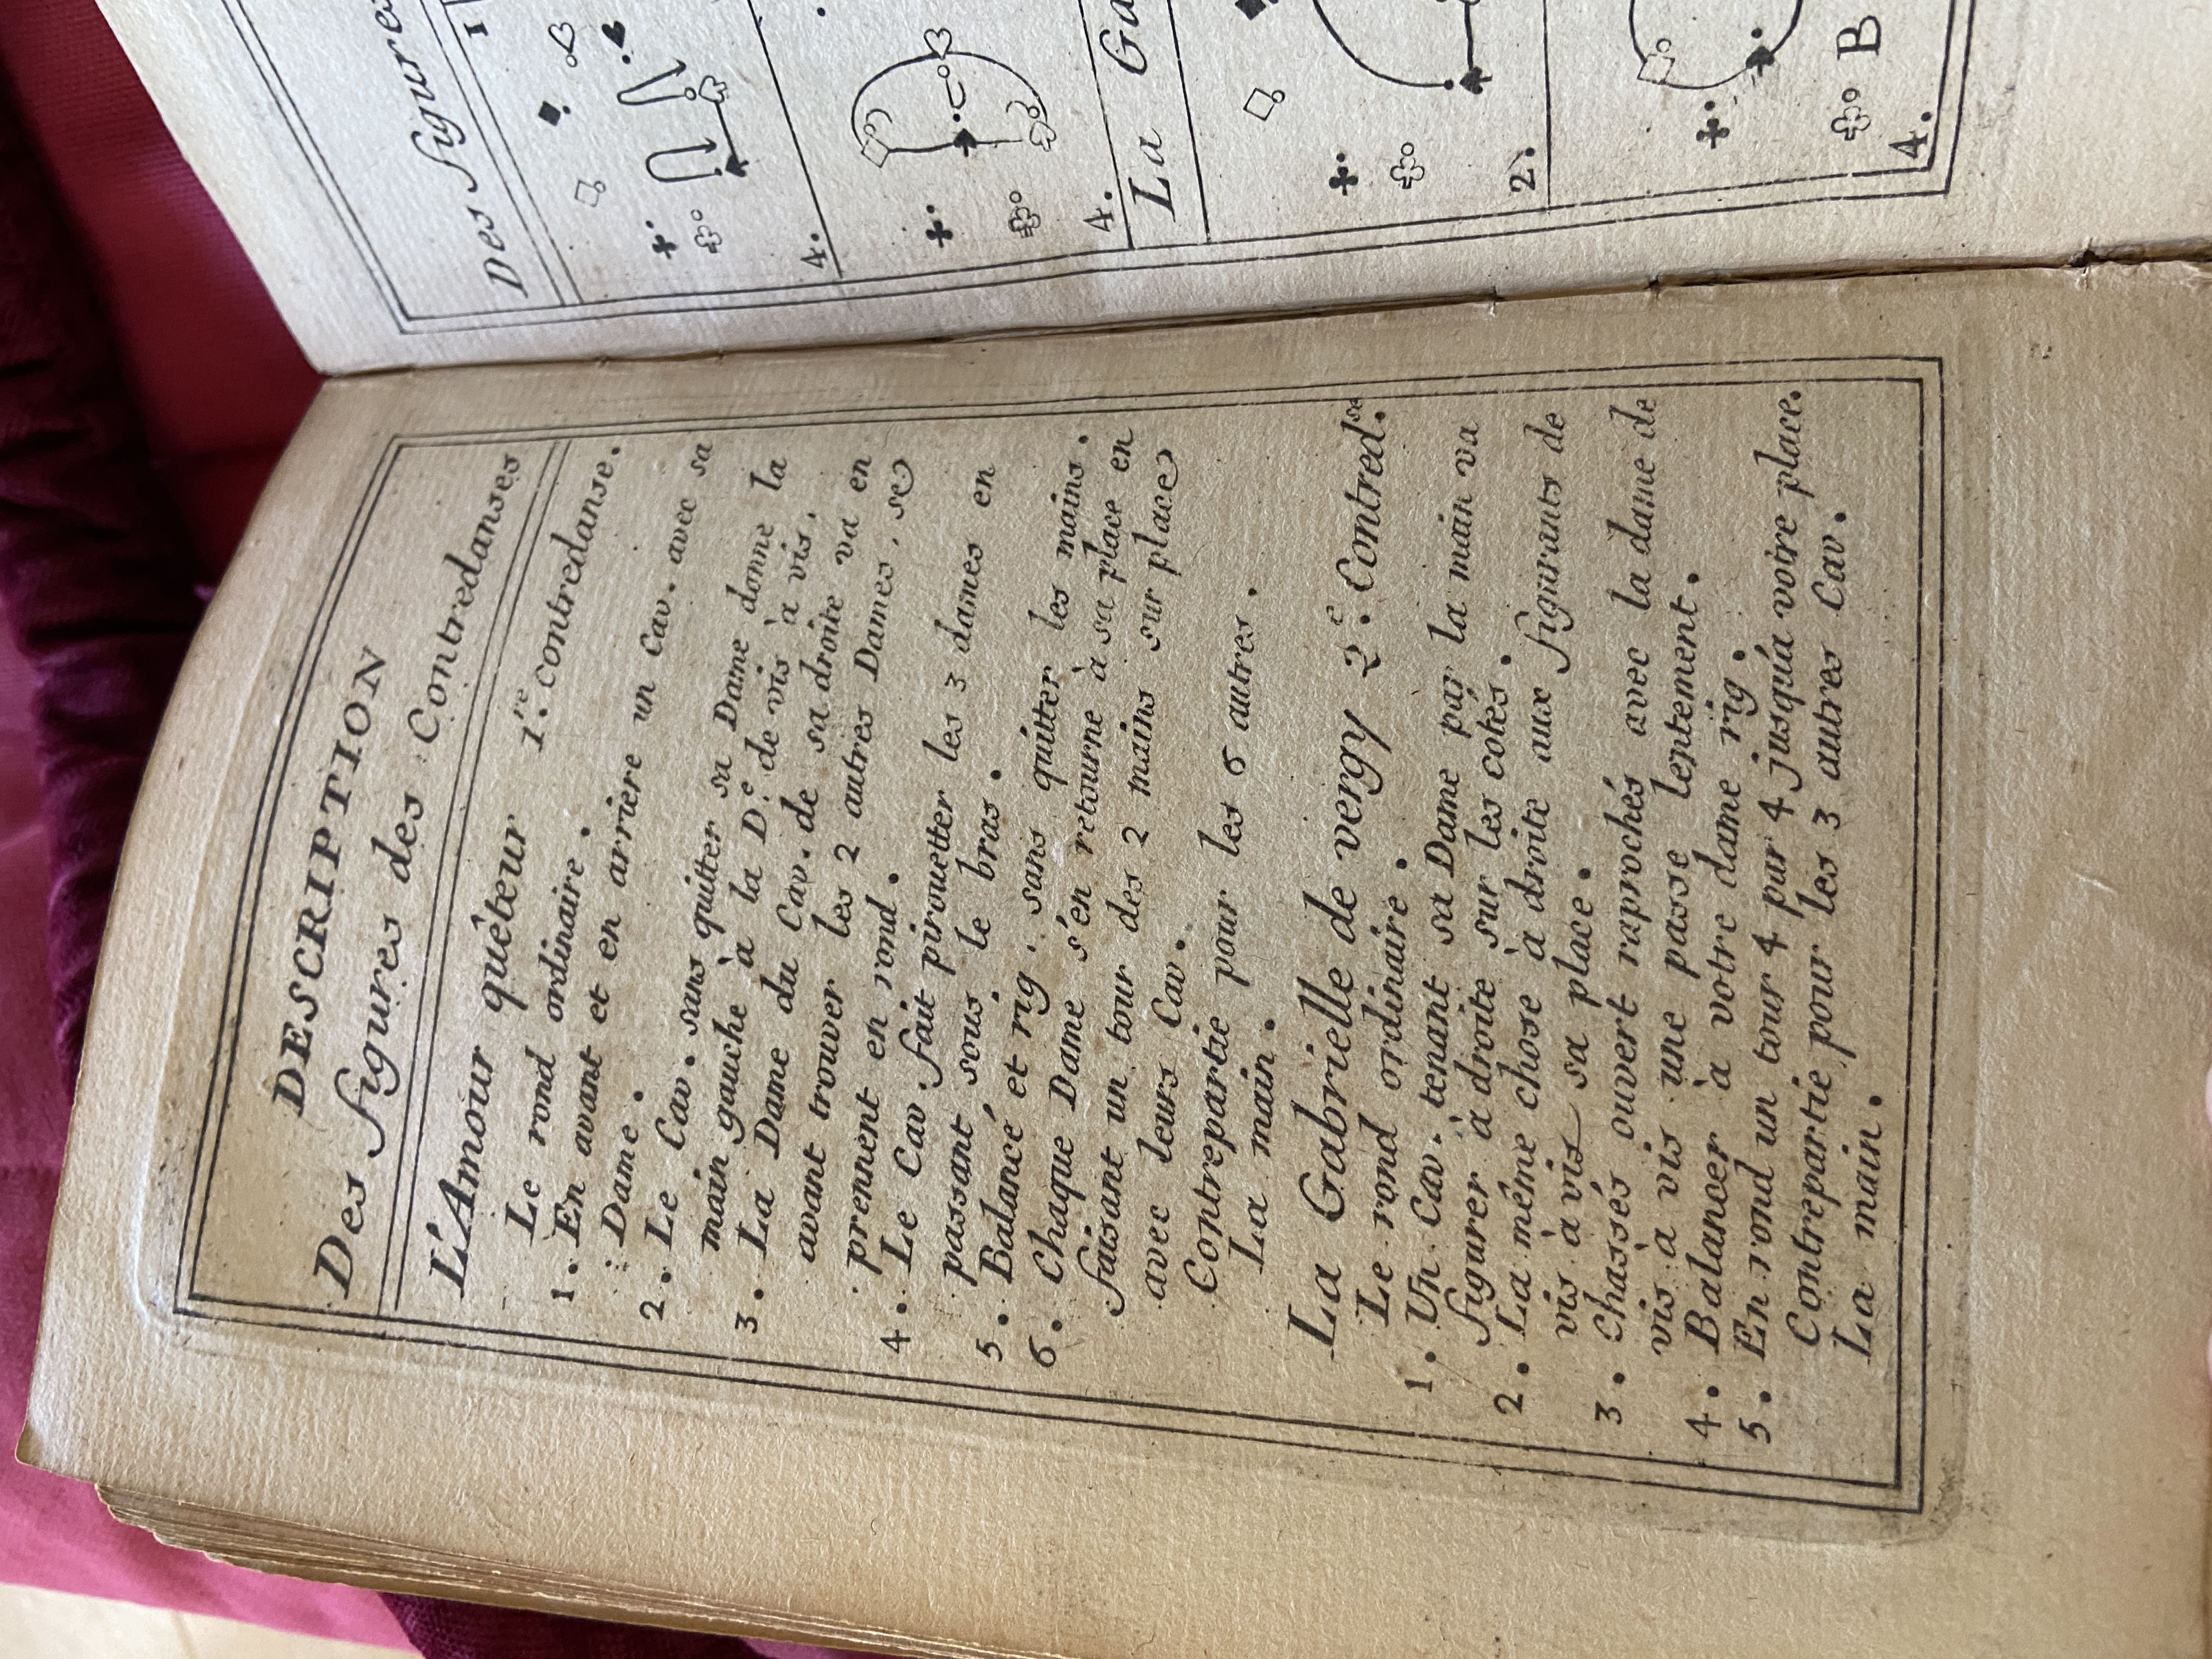 DESCRIPTION
Des figures des Contredanses
L'Amour quêteur 1.re contredanse.
Le rond ordinaire.
1. En avant et en arriere un Cav. avec sa
Dame.
2. Le Cav. sans quitter sa Dame donne la
main gauche à la D.e de vis à vis.
3. La Dame du Cav. de sa droite va en
avant trouver les 2 autres Dames, se
prennent en rond.
4. Le Cav. fait pirouetter les 3 dames en
passant sous le bras.
5. Balancé et rig. sans quitter les mains.
6. Chaque Dame s'en retourne à sa place en
faisant un tour des 2 mains sur place
avec leurs Cav.
Contrepartie pour les 6 autres.
La main.
La Gabrielle de vergy 2.e Contred.se
Le rond ordinaire.
1. Un Cav. tenant sa Dame par la main va
figurer à droite sur les cotés.
2. La même chose à droite aux figurants de
vis à vis sa place.
3. Chassés ouvert raprochés avec la dame de
vis à vis une passe lentement.
4. Balancer à votre dame rig.
5. En rond un tour 4 par 4 jusqu'à voire place.
Contrepartie pour les 3 autres Cav.
La main.
Des figures
1
4.
4.
La Ga
2.
B
4.